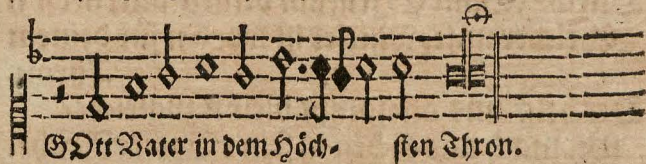 GOtt Vater in dem Höch⸗ ſten Thron.